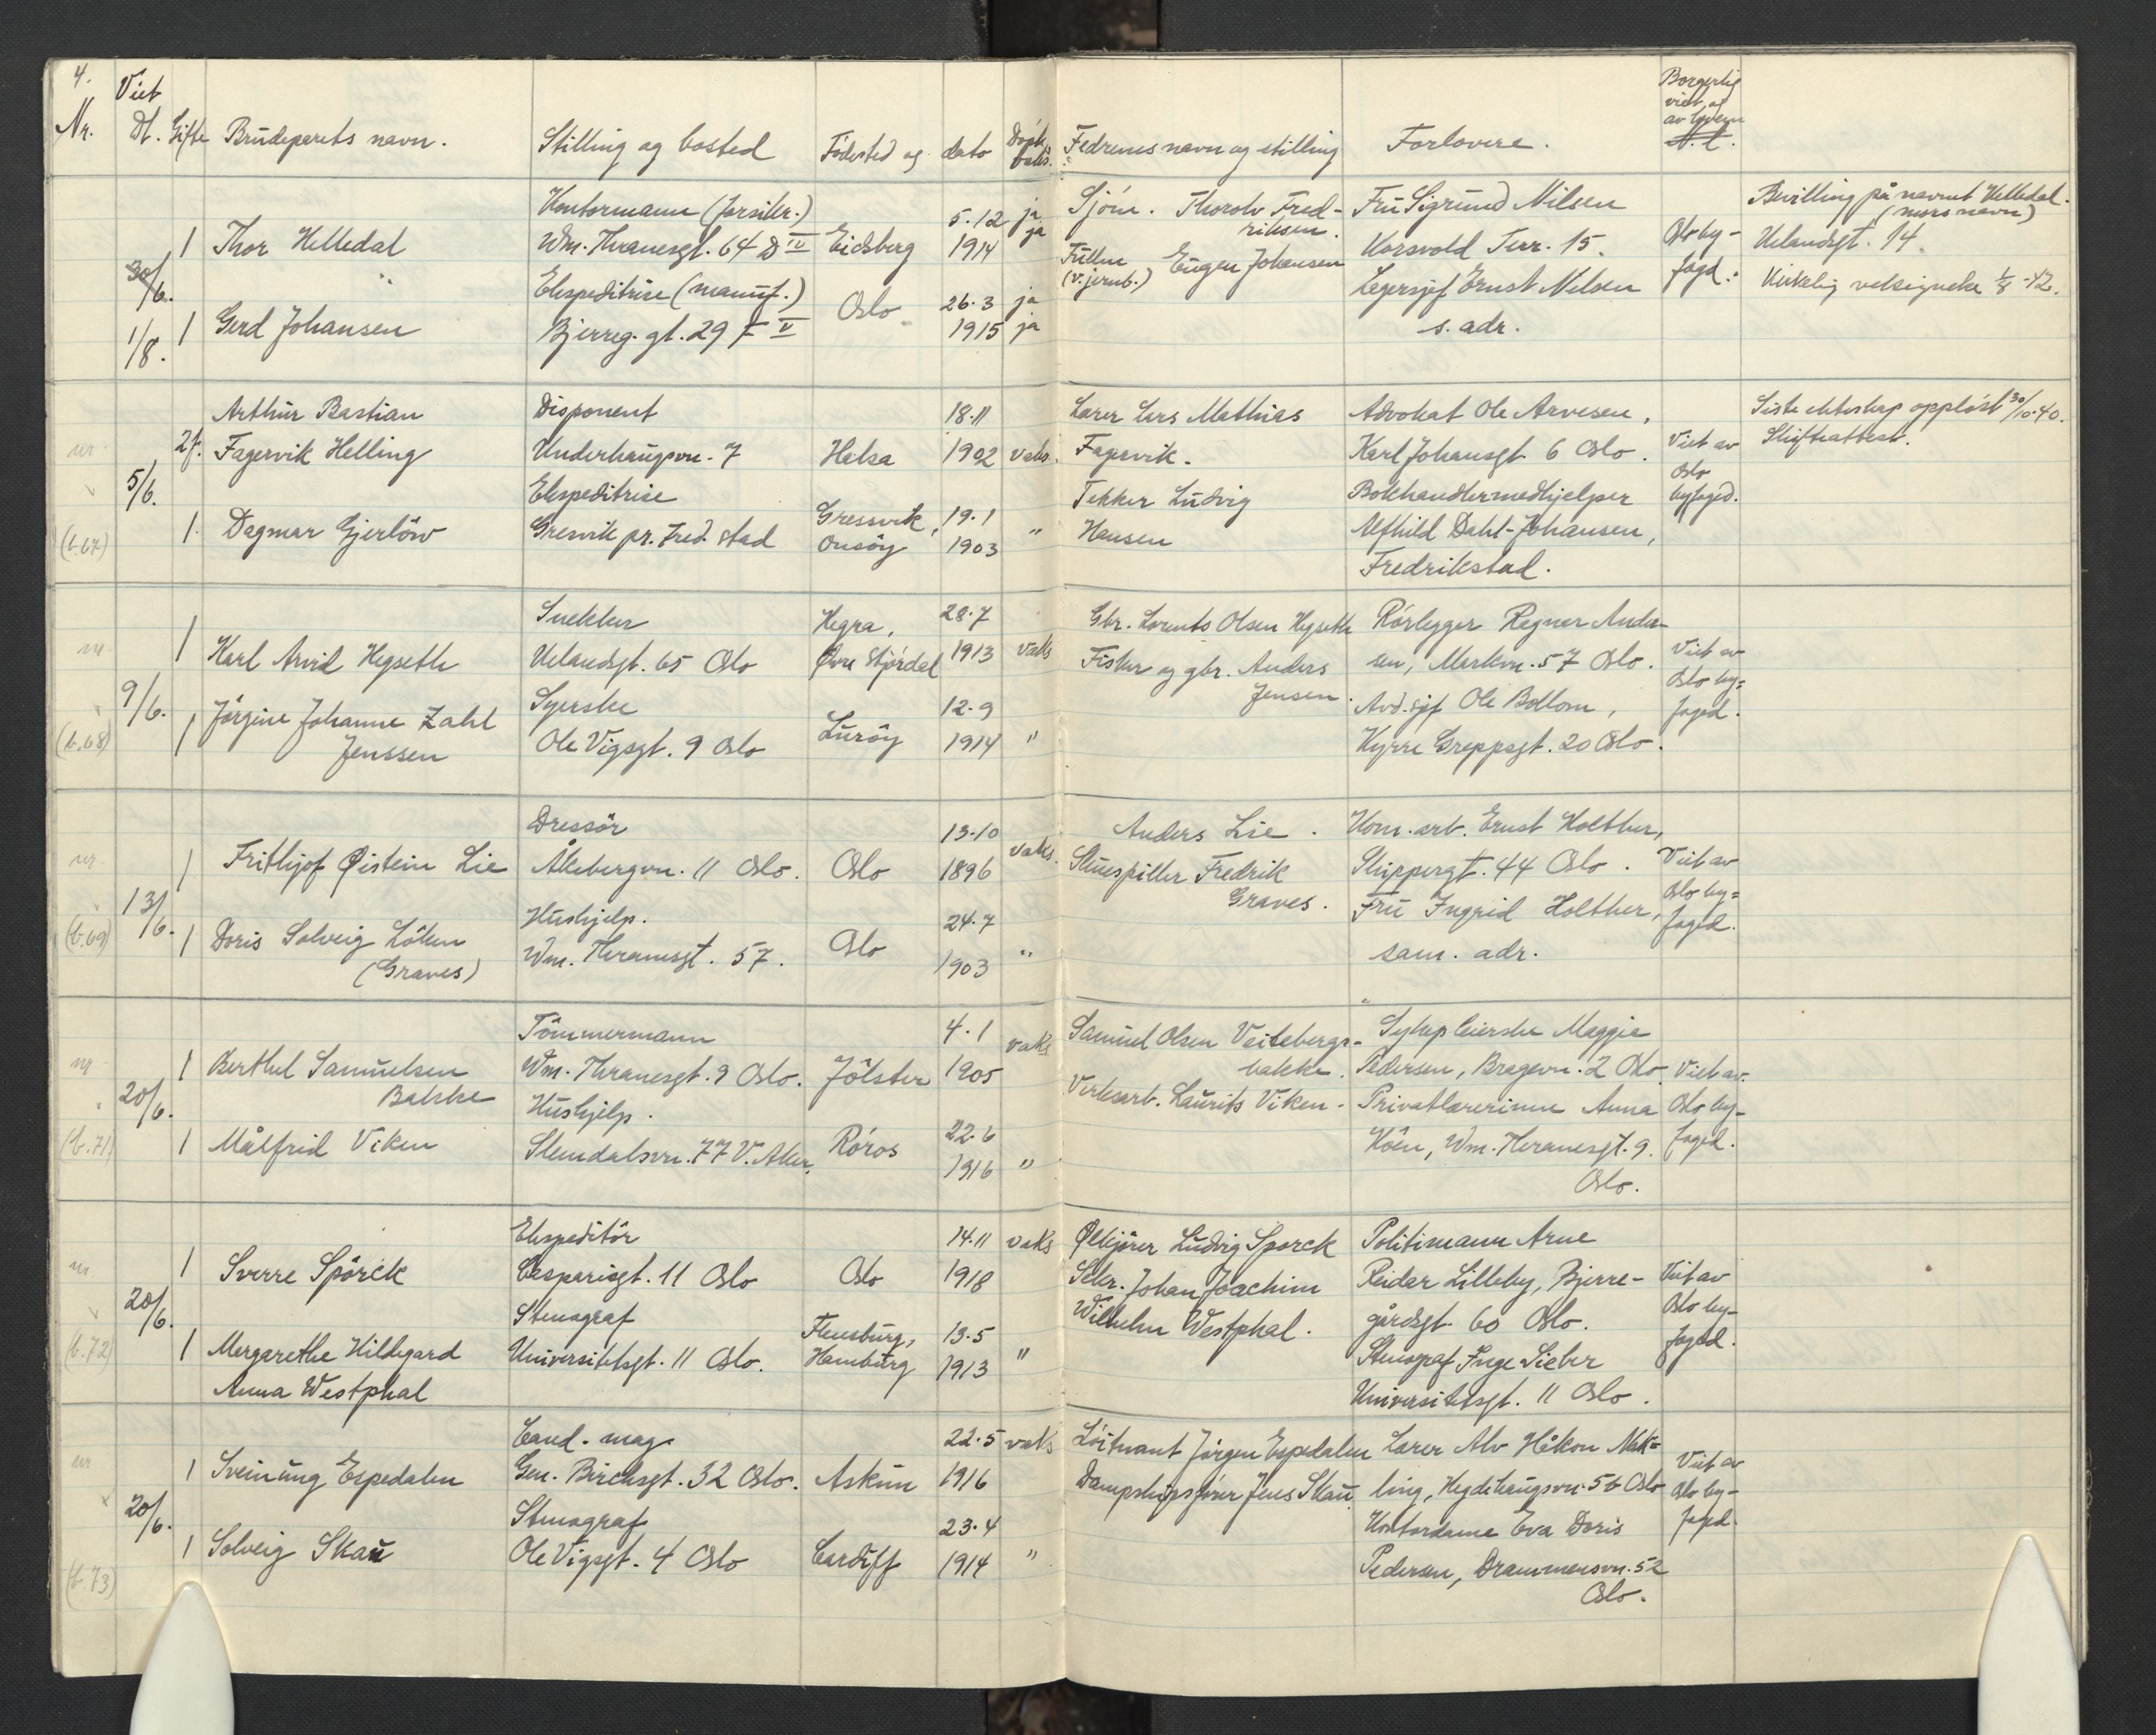 4.
Viet
Nr. Dt. Gifte Brudeparets navn. Stilling og bosted Födested og dato Døpt vaks. Fedrenes navn og stilling Forlovere. Borgerlig viet, og av hvem
Kontormann (forsikr.) 5.12 ja Sjöm. Thorolv Fred- Fru Sigrund Nilsen Bevilling på navnet Helledal.
(mors navn)
1 Thor Helledal Wm. Thranesgt. 64 D IV Eidsberg 1914 ja riksen. Korsvold Terr. 15. Oslo by- Uelandsgt. 14.
30/6. Ekspeditrise (manuf.) Oslo 26.3 ja Fullm. Eugen Johansen Lagersjef Ernst Nilsen fogd. Kirkelig velsignelse 1/8 -42.
(v. jernb.)
1/8. 1 Gerd Johansen Bjerreg. gt. 29 F V 1915 ja s. adr.
Arthur Bastian Disponent 18.11 Lærer Lars Mathias Advokat Ole Arvesen, Siste ekteskap opplöst 30/10.40.
nr. 2f. Fagervik Helling Underhaugsvn. 7 Halsa 1902 vaks. Fagervik. Karl Johansgt. 6 Oslo. Viet av Skifteattest.
5/6. Ekspeditrise Gressvik, 19.1 Tekker Ludvig Bokhandlermedhjelper Oslo
(b.67) 1. Dagmar Gjerlöw Gresvik pr. Fred.stad Onsöy 1903 " Hansen Alfhild Dahl-Johansen, byfogd.
Fredrikstad.
Snekker Hegra, 28.7 Gbr. Lorents Olsen Hegseth Rörlegger Ragnar Ander-
nr 1 Karl Arvid Hegseth Uelandsgt. 65 Oslo Övre Stjördal 1913 vaks Fisker og gbr. Anders sen, Markvn. 57 Oslo. Viet av
9/6. 1 Jörgine Johanne Zahl Syerske Luröy 12.9 Jensen. Avd.sjef Ole Bollom, Oslo by=
(b.68) Jenssen Ole Vigsgt. 9 Oslo 1914 " Kyrre Greppsgt. 20 Oslo. fogd.
Dressör 13.10 Anders Lie. Kom. arb. Ernst Holther,
nr. 1 Frithjof Øistein Lie Åkebergvn. 11 Oslo. Oslo 1896 vaks. Skuespiller Fredrik Skippergt. 44 Oslo. Viet av
13/6. Hushjelp. 24.7 Graves. Fru Ingrid Holther, Oslo by=
(b.69) 1 Doris Solveig Löken Wm. Thranesgt. 57. Oslo 1903 " sam. adr. fogd.
(Graves)
Tömmermann 4.1 vaks Samuel Olsen Veitebergs- Sykepleierske Maggie
nr 1 Berthel Samuelsen Wm. Thranesgt. 9 Oslo. Jölster 1905 bakke. Pedersen, Bragevn. 2 Oslo. Viet av
20/6. Bakke Hushjelp. Verksarb. Laurits Viken. Privatlærerinne Anna Oslo by-
(b.71) 1 Målfrid Viken Slemdalsvn. 77 V. Aker. Röros 22.6 Höen, Wm. Thranesgt. 9. fogd.
1916 " Oslo.
Ekspeditör 14.11 vaks Ölkjörer Ludvig Sporck Politimann Arne
nr 1 Sverre Spörck Casparisgt. 11 Oslo Oslo 1918 Sekr. Johan Joachim Reidar Lilleby, Bjerre- Viet av
20/6. Stenograf Flensburg, 13.5 Wilhelm Westphal. gårdsgt. 60 Oslo. Oslo by-
(b.72) 1 Margarethe Hildegard Universitetsgt. 11 Oslo. Hamburg 1913 " Stenograf Inge Sieber fogd.
Anna Westphal Universitetsgt. 11 Oslo.
Cand. mag. 22.5 vaks Löitnant Jörgen Espedalen Lærer Alv Håkon
nr 1 Sveinung Espedalen Gen. Birchsgt. 32 Oslo. Askim 1916 Dampskipsförer Jens Skau ling, Hegdehaugsvn. 56 Oslo Viet av
20/6. Stenograf 23.4 Kontordame Eva Doris Oslo by-
(b.73) 1 Solveig Skau Ole Vigsgt. 4 Oslo Cardiff 1914 " Pedersen, Drammensvn. 52 fogd.
Oslo.